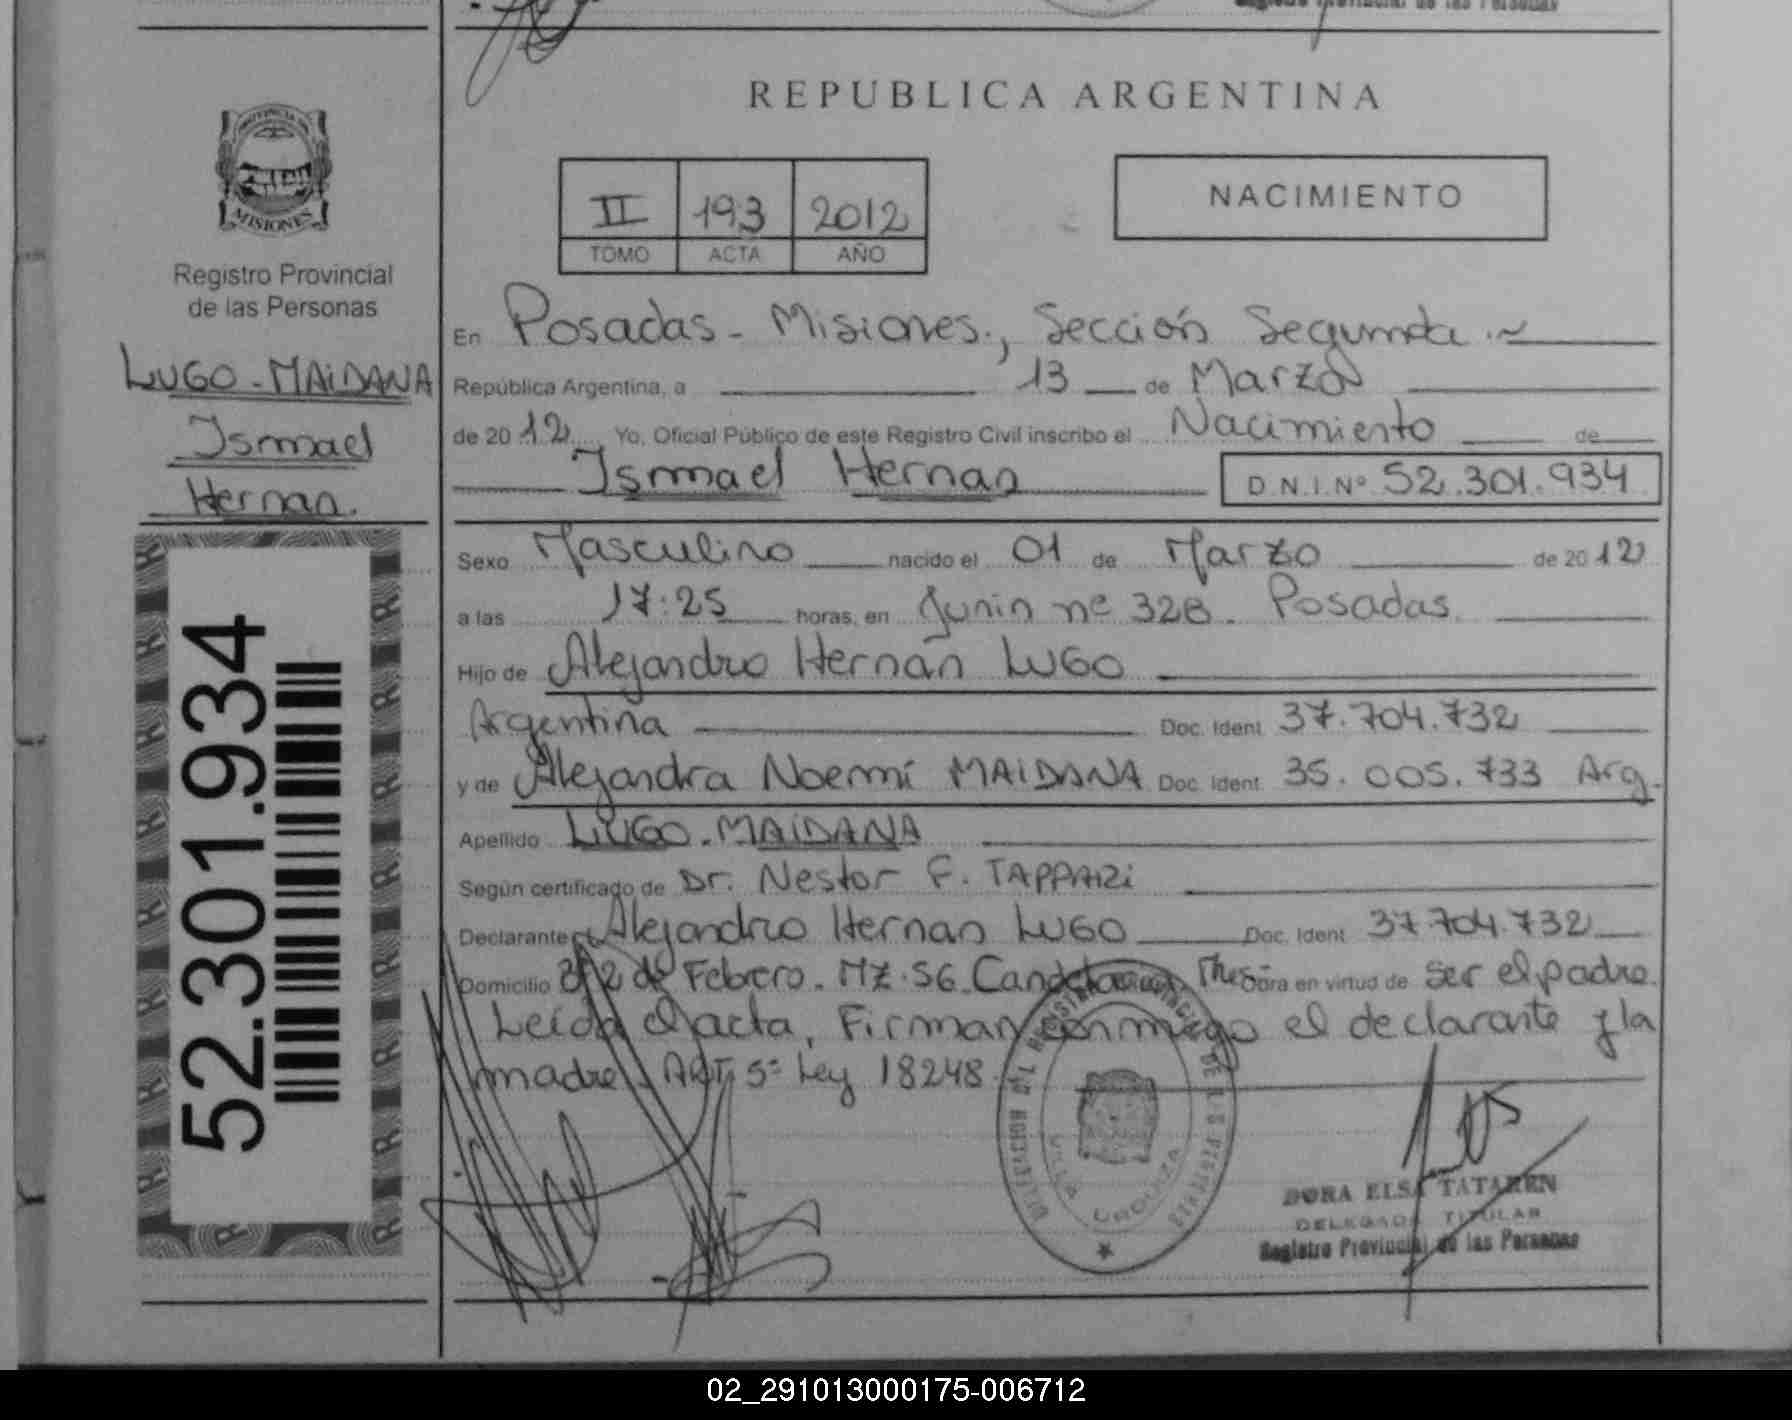 Registro Provincial de las Personas
REPUBLICA ARGENTINA
PROVINCIA DE
MISIONES
Registro Provincial
de las Personas
LUGO-MAIDANA
Ismael
Hernan.
52.301.934
II 193 2012
TOMO ACTA AÑO
NACIMIENTO
En Posadas - Misiones., Sección Segunda.
República Argentina, a 13 de Marzo
de 2012 Yo, Oficial Público de este Registro Civil inscribo el Nacimiento de
Ismael Hernan D.N.I.Nº 52.301.934
Sexo Masculino nacido el 01 de Marzo de 2012
a las 17:25 horas, en Junin nº 328. Posadas.
Hijo de Alejandro Hernán LUGO
Argentina Doc. Ident. 37.704.732
y de Alejandra Noemí MAIDANA Doc. Ident. 35.005.733 Arg.
Apellido LUGO-MAIDANA
Según certificado de Dr. Nestor F.
Declarante Alejandro Hernan LUGO Doc. Ident. 37.704.732
Domicilio 2 de Febrero. MZ.56. Obra en virtud de ser el padre.
Leída el acta, Firman conmigo el declarante y la
madre. ART. 5º Ley 18248.
VILLA URQUIZA
DORA ELSA TATAREN
DELEGADA TITULAR
Registro Provincial de las Personas
02_291013000175-006712